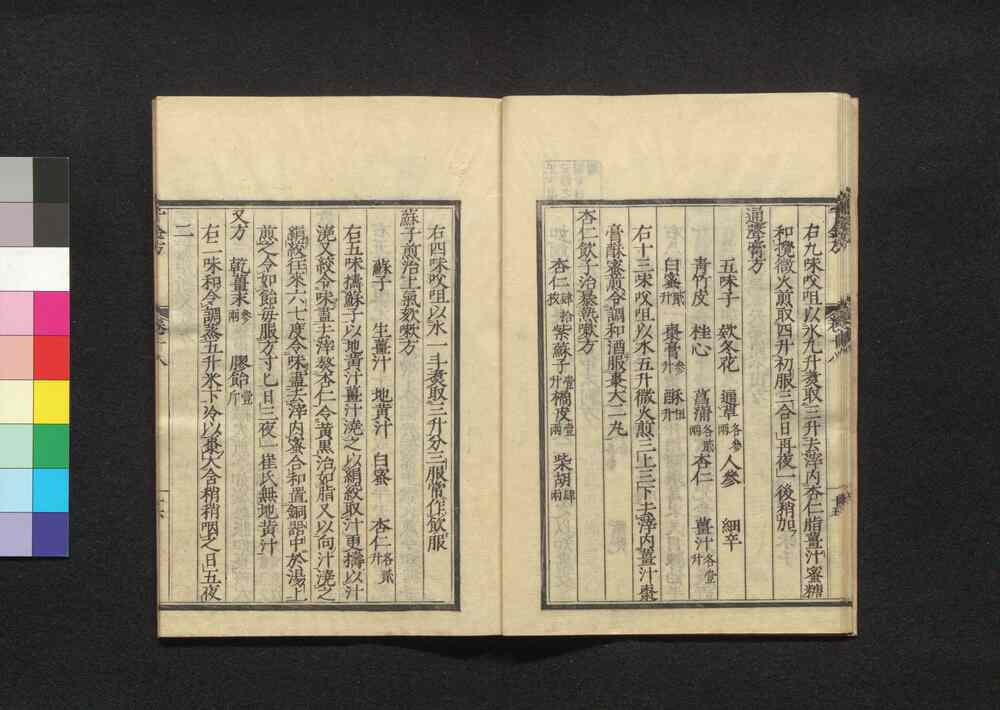 右九味㕮咀以水九升煑取三升去滓内杏仁脂薑汁蜜糖
和攪微火煎取四升初服三合日再夜一後稍加
通聲膏方
五味子 欵冬花 通草各參兩 人參 細辛
青竹皮 桂心 菖蒲各貳兩 杏仁 薑汁各壹升
白蜜貳升 棗膏參升 酥伍升
右十三味㕮咀以水五升微火煎三上三下去滓内薑汁棗
膏酥蜜煎令調和酒服棗大二丸
杏仁飲子治暴熱嗽方
杏仁肆拾枚 紫蘇子壹升 橘皮壹兩 柴胡肆兩
右四味㕮咀以水一斗煑取三升分三服常作飲服
蘇子煎治上氣欬嗽方
蘇子 生薑汁 地黃汁 白蜜 杏仁各貳升
右五味擣蘇子以地黃汁薑汁澆之以絹絞取汁更擣以汁
澆又絞令味盡去滓熬杏仁令黃黒治如脂又以向汁澆之
絹絞往來六七度令味盡去滓内蜜合和置銅器中於湯上
煎之令如飴每服方寸匕日三夜一崔氏無地黃汁
又方 乾薑末參兩 膠飴壹斤
右二味和令調蒸五升米下冷以棗大含稍稍咽之日五夜
二